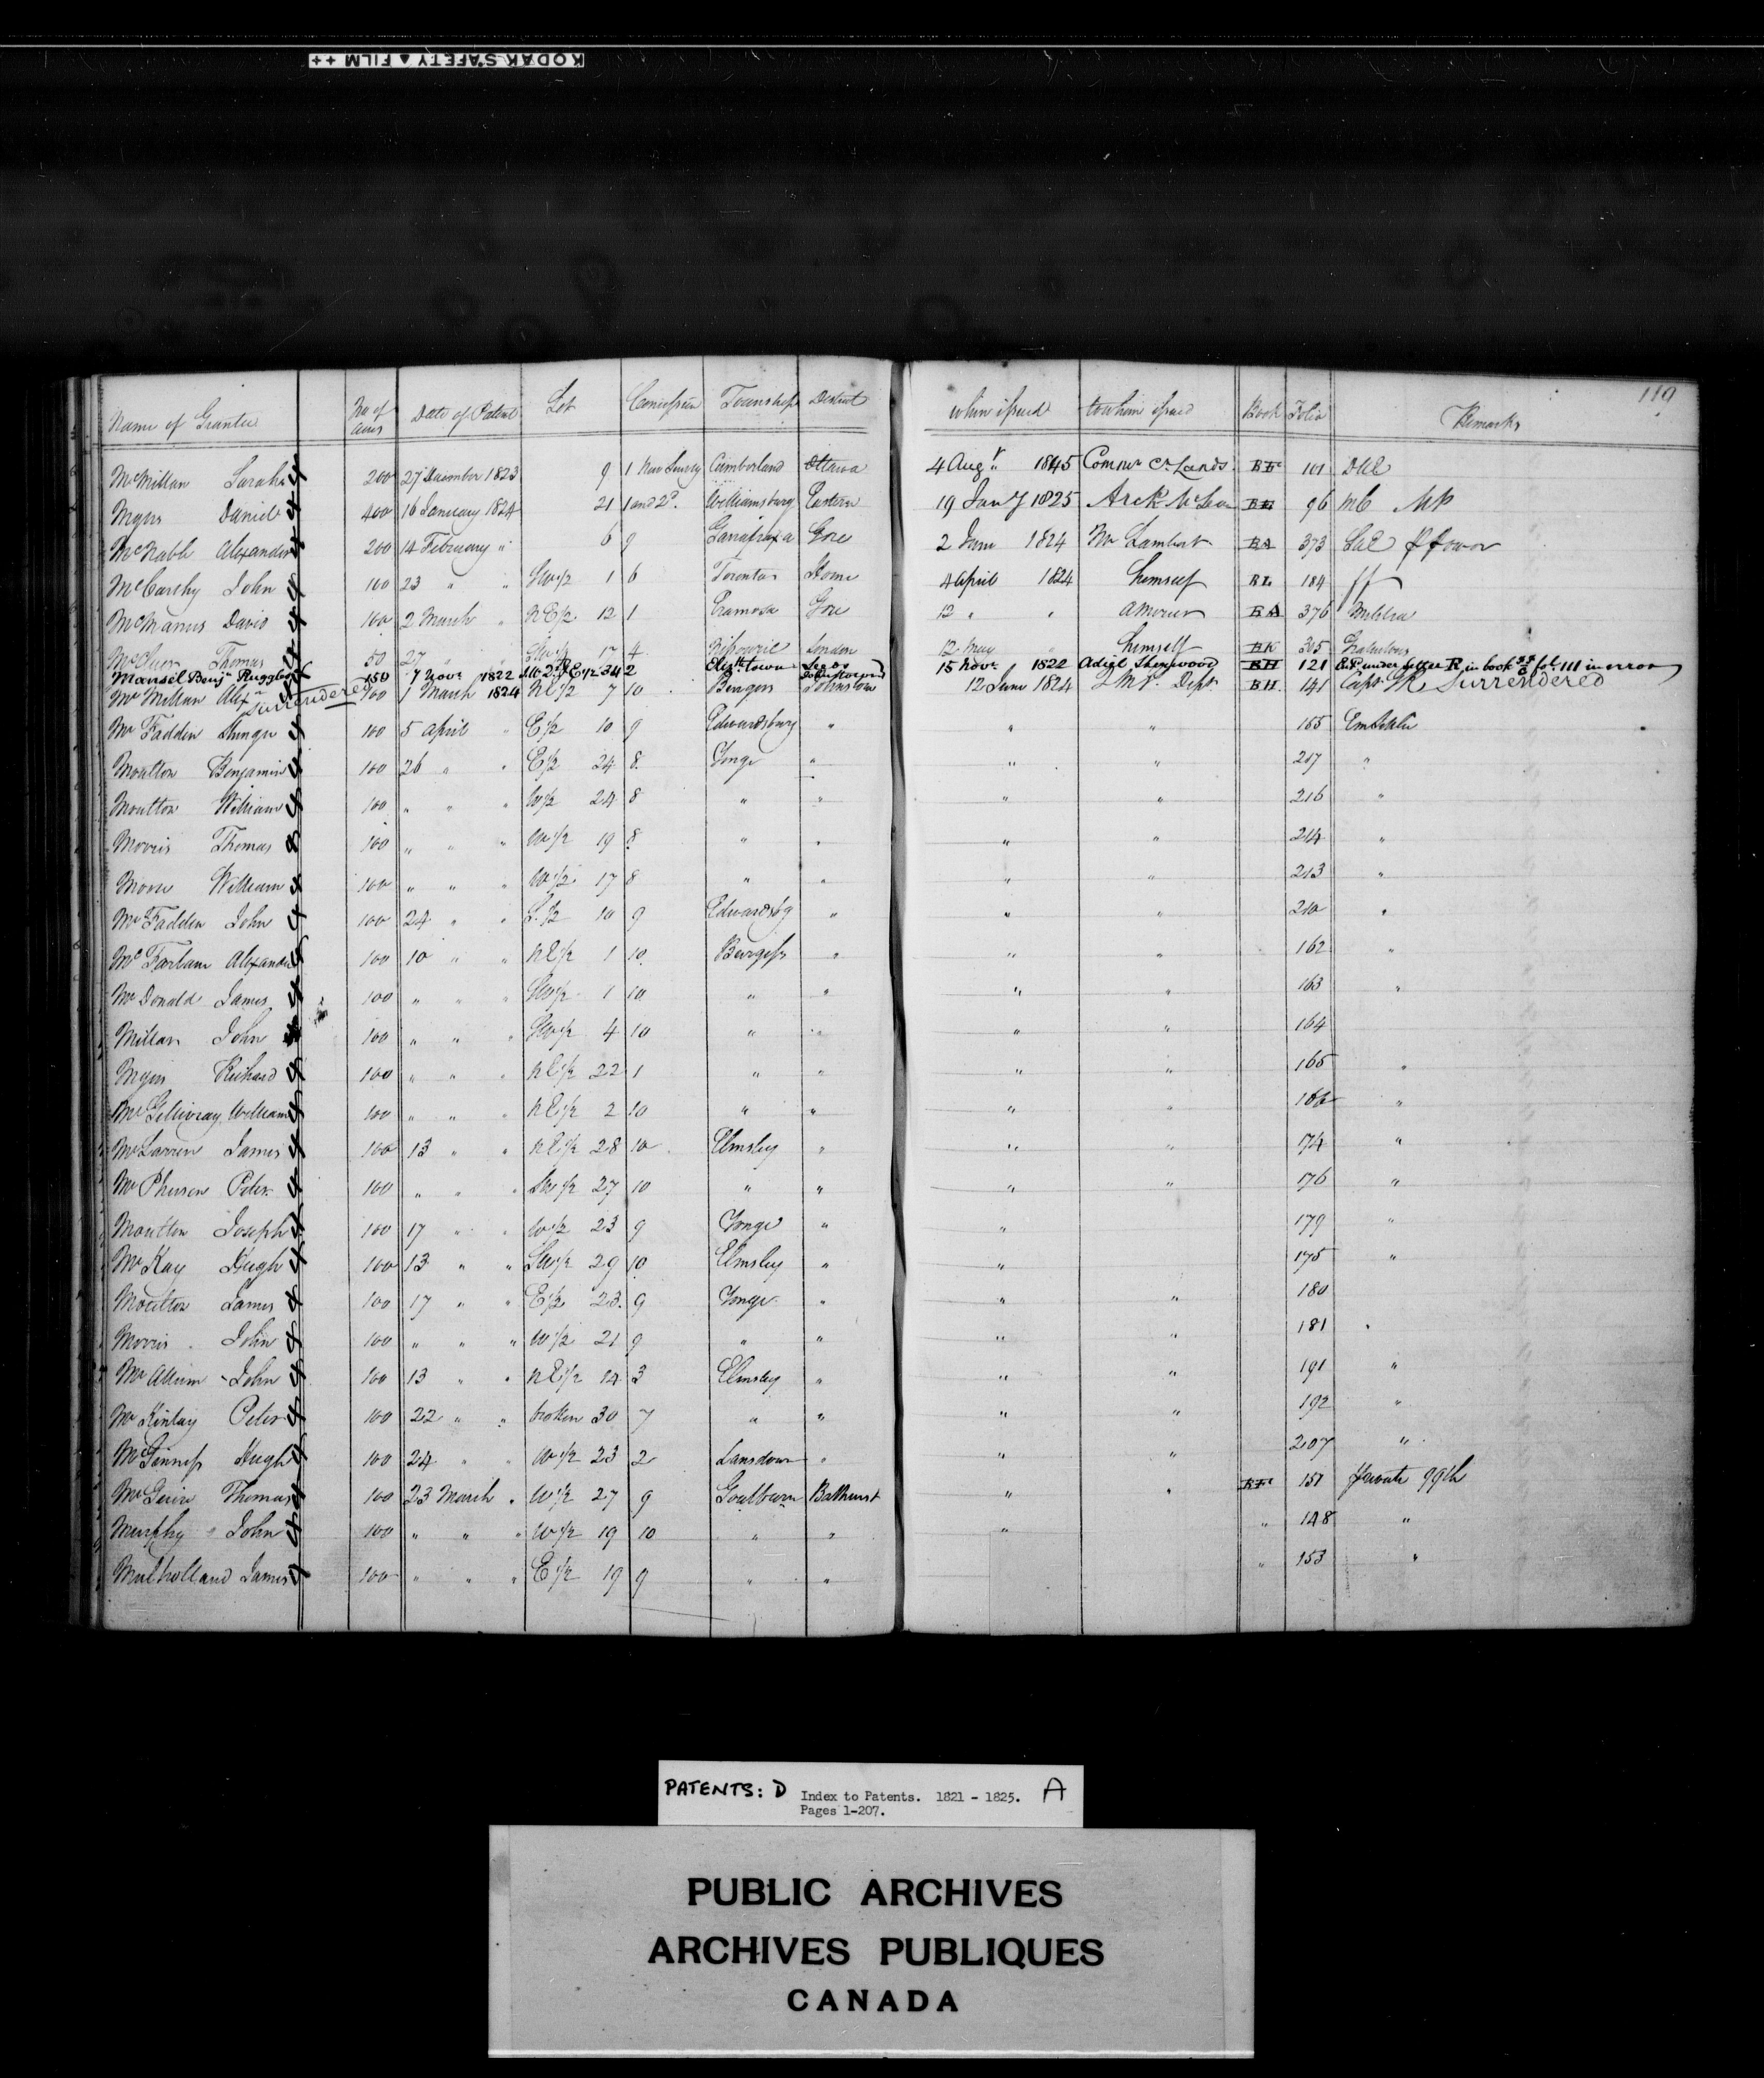 KODAK SAFETY ▲ FILM ++
119
Name of Grantee No of Acres Date of Patent Lot Concession Township District when issued to whom issued Book Folio Remarks
McMillan Sarah 200 27 December 1823 9 1 New Survey Cumberland Ottawa 4 Augt 1845 Commr Cn Lands 101
Myers Daniel 400 16 January 1824 21 1 and 2d. Williamsburg Eastern 19 Jany 1825 96
McNabb Alexander 200 14 February " 6 9 Garafraxa Gore 2 June 1824 Mr Lambert 373
McCarthy John 100 23 " " SW 1/2 1 6 Toronto Home 4 April 1824 himself 184
McManus David 100 2 March " NE 1/2 12 1 Eramosa Gore 12 " " 376
Thomas 50 27 " " SW 1/2 17 4 London 12 May " himself 305
Mansel Benjn Ruggles 150 7 Novr 1822 34 2 Elizth town 15 Novr 1822 Adiel Sherwood 121 under letter R in book fol 111 in error
McMillan Alexr Surrendered 100 1 March 1824 NE 1/2 7 10 Johnstown 12 June 1824 Dept. 141 Capt Surrendered
McFadden 100 5 April " E 1/2 10 9 Edwardsburg " " " 155
Moulton Benjamin 100 26 " " E 1/2 24 8 Yonge " " " 217 "
Moulton William 100 " " " W 1/2 24 8 " " " " 216 "
Morris Thomas 100 " " " W 1/2 19 8 " " " " 214 "
William 100 " " " W 1/2 17 8 " " " " 213 "
McFadden John 100 24 " " 10 9 Edwardsbg " " " 210 "
McFarlane Alexander 100 10 " " NE 1/2 1 10 Burgess " " " 162 "
McDonald James 100 " " " SW 1/2 1 10 " " " " 163 "
Millar John 100 " " " SW 1/2 4 10 " " " " 164
Myers Richard 100 " " " NE 1/2 22 1 " " " " 165 "
McGillivray William 100 " " " NE 1/2 2 10 " " " " 166 "
McLaren James 100 13 " " NE 1/2 28 10 Elmsley " " " 174 "
McPherson Peter 100 " " " SW 1/2 27 10 " " " " 176 "
Moulton Joseph 100 17 " " W 1/2 23 9 Yonge " " 179 "
McKay Hugh 100 13 " " SW 1/2 29 10 Elmsley " " 175 "
Moulton James 100 17 " " E 1/2 23 9 Yonge " " " 180
Morris John 100 " " " W 1/2 21 9 " " " " 181 "
John 100 13 " " NE 1/2 14 3 Elmsley " " " 191 "
McKinlay Peter 100 22 " " broken 30 7 " " " " 192 "
McGinness Hugh 100 24 " " W 1/2 23 2 Lansdown " " " 207 "
Thomas 100 23 March " W 1/2 27 9 Goulburn Bathurst " " 151 private 99th
Murphy John 100 " " " W 1/2 19 10 " " " " 148 "
Mulholland James 100 " " " E 1/2 19 9 " " " 153 "
PATENTS: D Index to Patents. 1821 - 1825. A
Pages 1-207.
PUBLIC ARCHIVES
ARCHIVES PUBLIQUES
CANADA